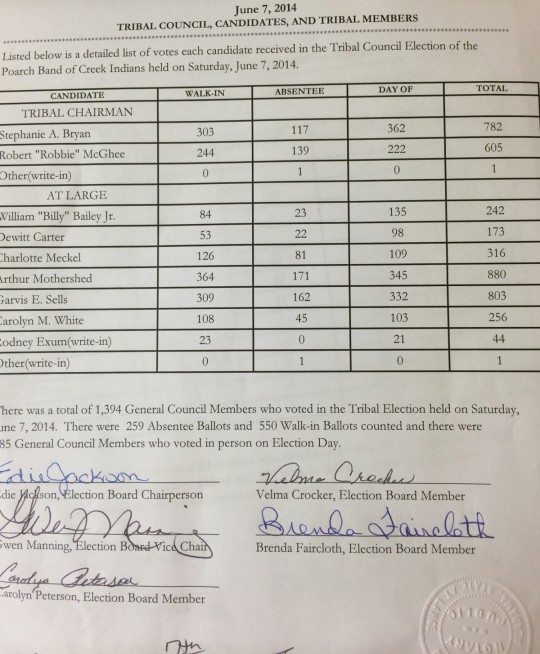 June 7, 2014
TRIBAL COUNCIL, CANDIDATES, AND TRIBAL MEMBERS
Listed below is a detailed list of votes each candidate received in the Tribal Council Election of the
Poarch Band of Creek Indians held on Saturday, June 7, 2014.
CANDIDATE WALK-IN ABSENTEE DAY OF TOTAL
TRIBAL CHAIRMAN
Stephanie A. Bryan 303 117 362 782
Robert "Robbie" McGhee 244 139 222 605
Other(write-in) 0 1 0 1
AT LARGE
William "Billy" Bailey Jr. 84 23 135 242
Dewitt Carter 53 22 98 173
Charlotte Meckel 126 81 109 316
Arthur Mothershed 364 171 345 880
Garvis E. Sells 309 162 332 803
Carolyn M. White 108 45 103 256
Rodney Exum(write-in) 23 0 21 44
Other(write-in) 0 1 0 1
There was a total of 1,394 General Council Members who voted in the Tribal Election held on Saturday,
June 7, 2014. There were 259 Absentee Ballots and 550 Walk-in Ballots counted and there were
85 General Council Members who voted in person on Election Day.
Edie Jackson Velma Crocker
Edie Jackson, Election Board Chairperson Velma Crocker, Election Board Member
Gwen Manning Brenda Faircloth
Gwen Manning, Election Board Vice Chair Brenda Faircloth, Election Board Member
Carolyn Peterson
Carolyn Peterson, Election Board Member
7th